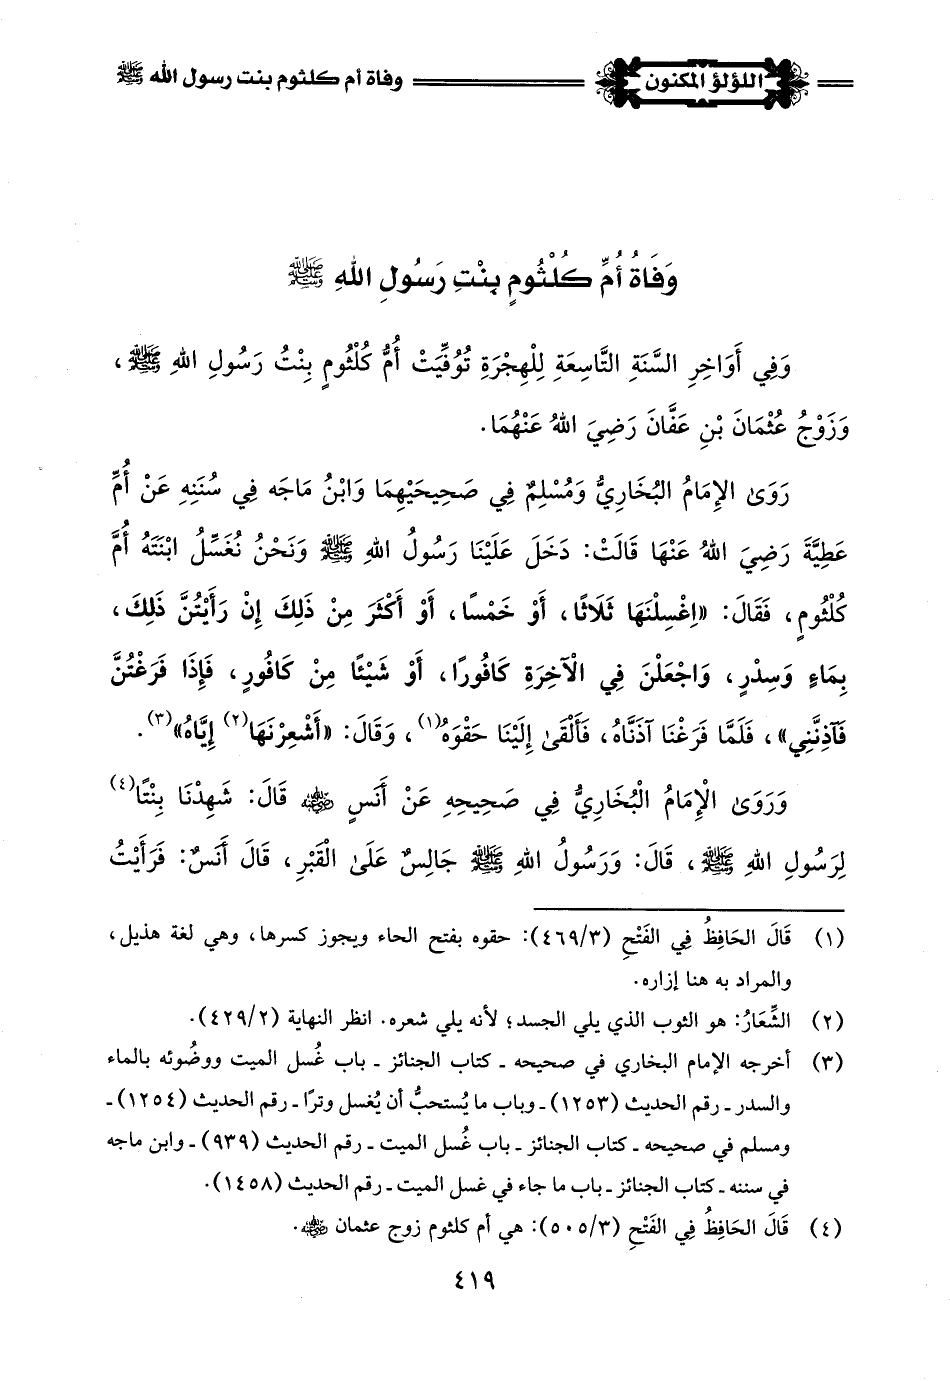 اللؤلؤ المكنون
وفاة أم كلثوم بنت رسول الله ﷺ
وَفَاةُ أُمِّ كُلْثُومٍ بِنْتِ رَسُولِ اللهِ ﷺ
وَفِي أَوَاخِرِ السَّنَةِ التَّاسِعَةِ لِلْهِجْرَةِ تُوُفِّيَتْ أُمُّ كُلْثُومٍ بِنْتُ رَسُولِ اللهِ ﷺ،
وَزَوْجُ عُثْمَانَ بْنِ عَفَّانَ رَضِيَ اللهُ عَنْهُمَا.
رَوَىٰ الإِمَامُ البُخَارِيُّ وَمُسْلِمٌ فِي صَحِيحَيْهِمَا وَابْنُ مَاجَه فِي سُنَنِهِ عَنْ أُمِّ
عَطِيَّةَ رَضِيَ اللهُ عَنْهَا قَالَتْ: دَخَلَ عَلَيْنَا رَسُولُ اللهِ ﷺ وَنَحْنُ نُغَسِّلُ ابْنَتَهُ أُمَّ
كُلْثُومٍ، فَقَالَ: «اِغْسِلْنَهَا ثَلَاثًا، أَوْ خَمْسًا، أَوْ أَكْثَرَ مِنْ ذَلِكَ إِنْ رَأَيْتُنَّ ذَلِكَ،
بِمَاءٍ وَسِدْرٍ، وَاجْعَلْنَ فِي الْآخِرَةِ كَافُورًا، أَوْ شَيْئًا مِنْ كَافُورٍ، فَإِذَا فَرَغْتُنَّ
فَآذِنَّنِي»، فَلَمَّا فَرَغْنَا آذَنَّاهُ، فَأَلْقَىٰ إِلَيْنَا حَقْوَهُ(١)، وَقَالَ: «أَشْعِرْنَهَا(٢) إِيَّاهُ»(٣).
وَرَوَىٰ الْإِمَامُ الْبُخَارِيُّ فِي صَحِيحِهِ عَنْ أَنَسٍ رضي الله عنه قَالَ: شَهِدْنَا بِنْتًا(٤)
لِرَسُولِ اللهِ ﷺ، قَالَ: وَرَسُولُ اللهِ ﷺ جَالِسٌ عَلَىٰ الْقَبْرِ، قَالَ أَنَسٌ: فَرَأَيْتُ
(١) قَالَ الحَافِظُ فِي الفَتْحِ (٤٦٩/٣): حقوه بفتح الحاء ويجوز كسرها، وهي لغة هذيل،
والمراد به هنا إزاره.
(٢) الشِّعَارُ: هو الثوب الذي يلي الجسد؛ لأنه يلي شعره. انظر النهاية (٤٢٩/٢).
(٣) أخرجه الإمام البخاري في صحيحه ـ كتاب الجنائز ـ باب غُسل الميت ووضُوئه بالماء
والسدر ـ رقم الحديث (١٢٥٣) ـ وباب ما يُستحبُّ أن يُغسل وترًا ـ رقم الحديث (١٢٥٤) ـ
ومسلم في صحيحه ـ كتاب الجنائز ـ باب غُسل الميت ـ رقم الحديث (٩٣٩) ـ وابن ماجه
في سننه ـ كتاب الجنائز ـ باب ما جاء في غسل الميت ـ رقم الحديث (١٤٥٨).
(٤) قَالَ الحَافِظُ فِي الفَتْحِ (٥٠٥/٣): هي أم كلثوم زوج عثمان رضي الله عنه.
٤١٩